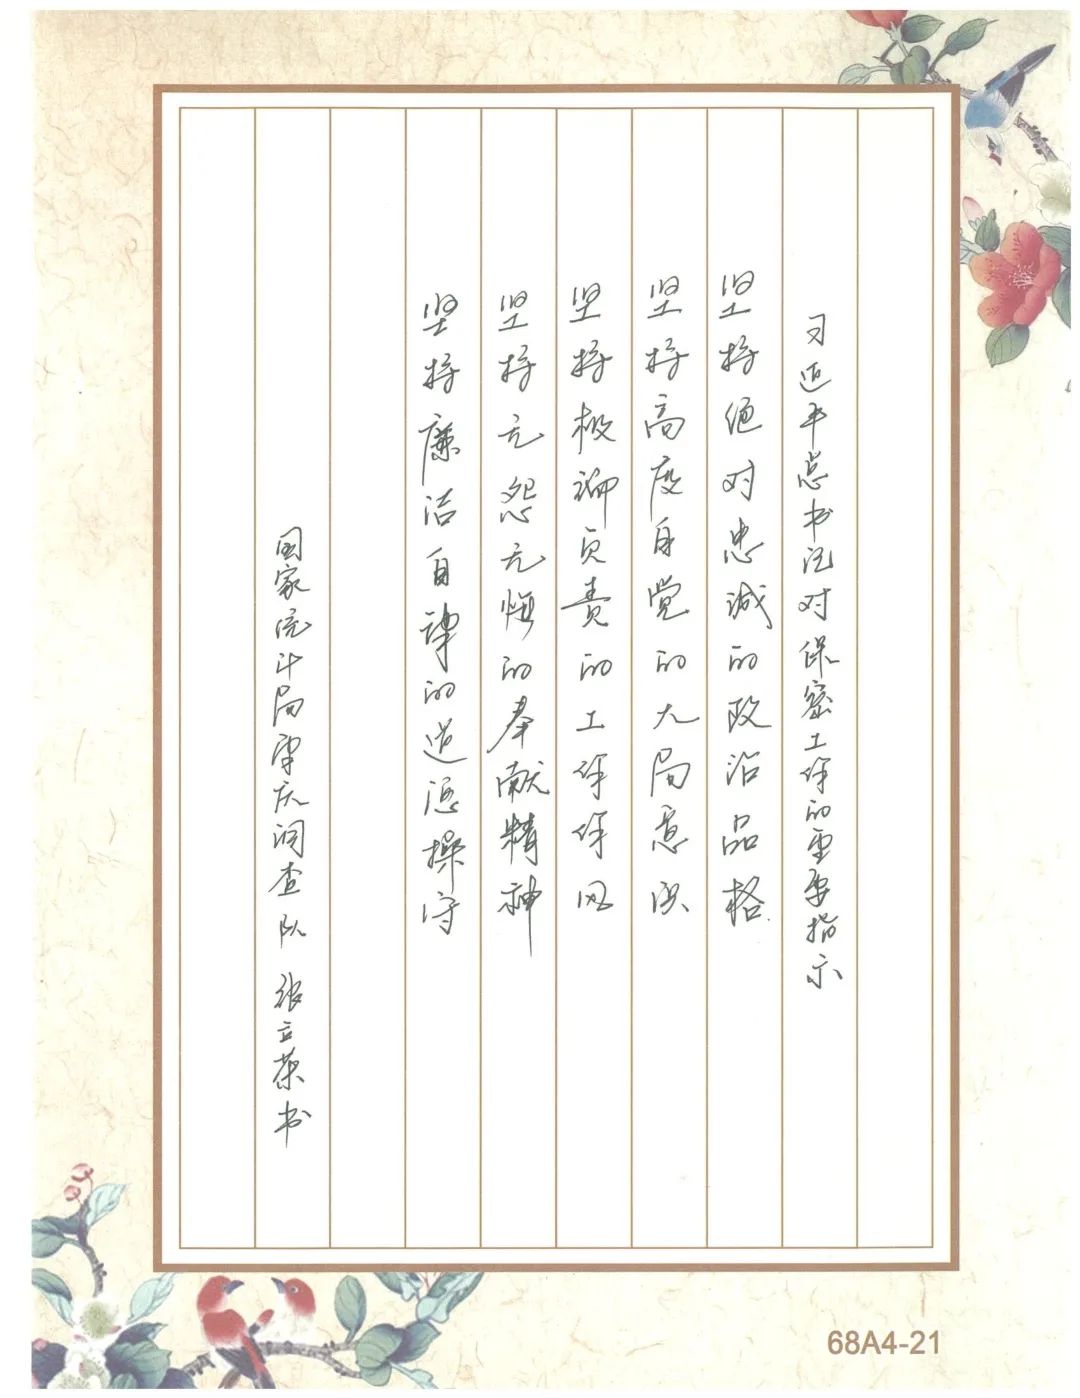 习近平总书记对保密工作的重要指示
坚持绝对忠诚的政治品格
坚持高度自觉的大局意识
坚持极端负责的工作作风
坚持无怨无悔的奉献精神
坚持廉洁自律的道德操守
国家统计局肇庆调查队 张立英书
68A4-21